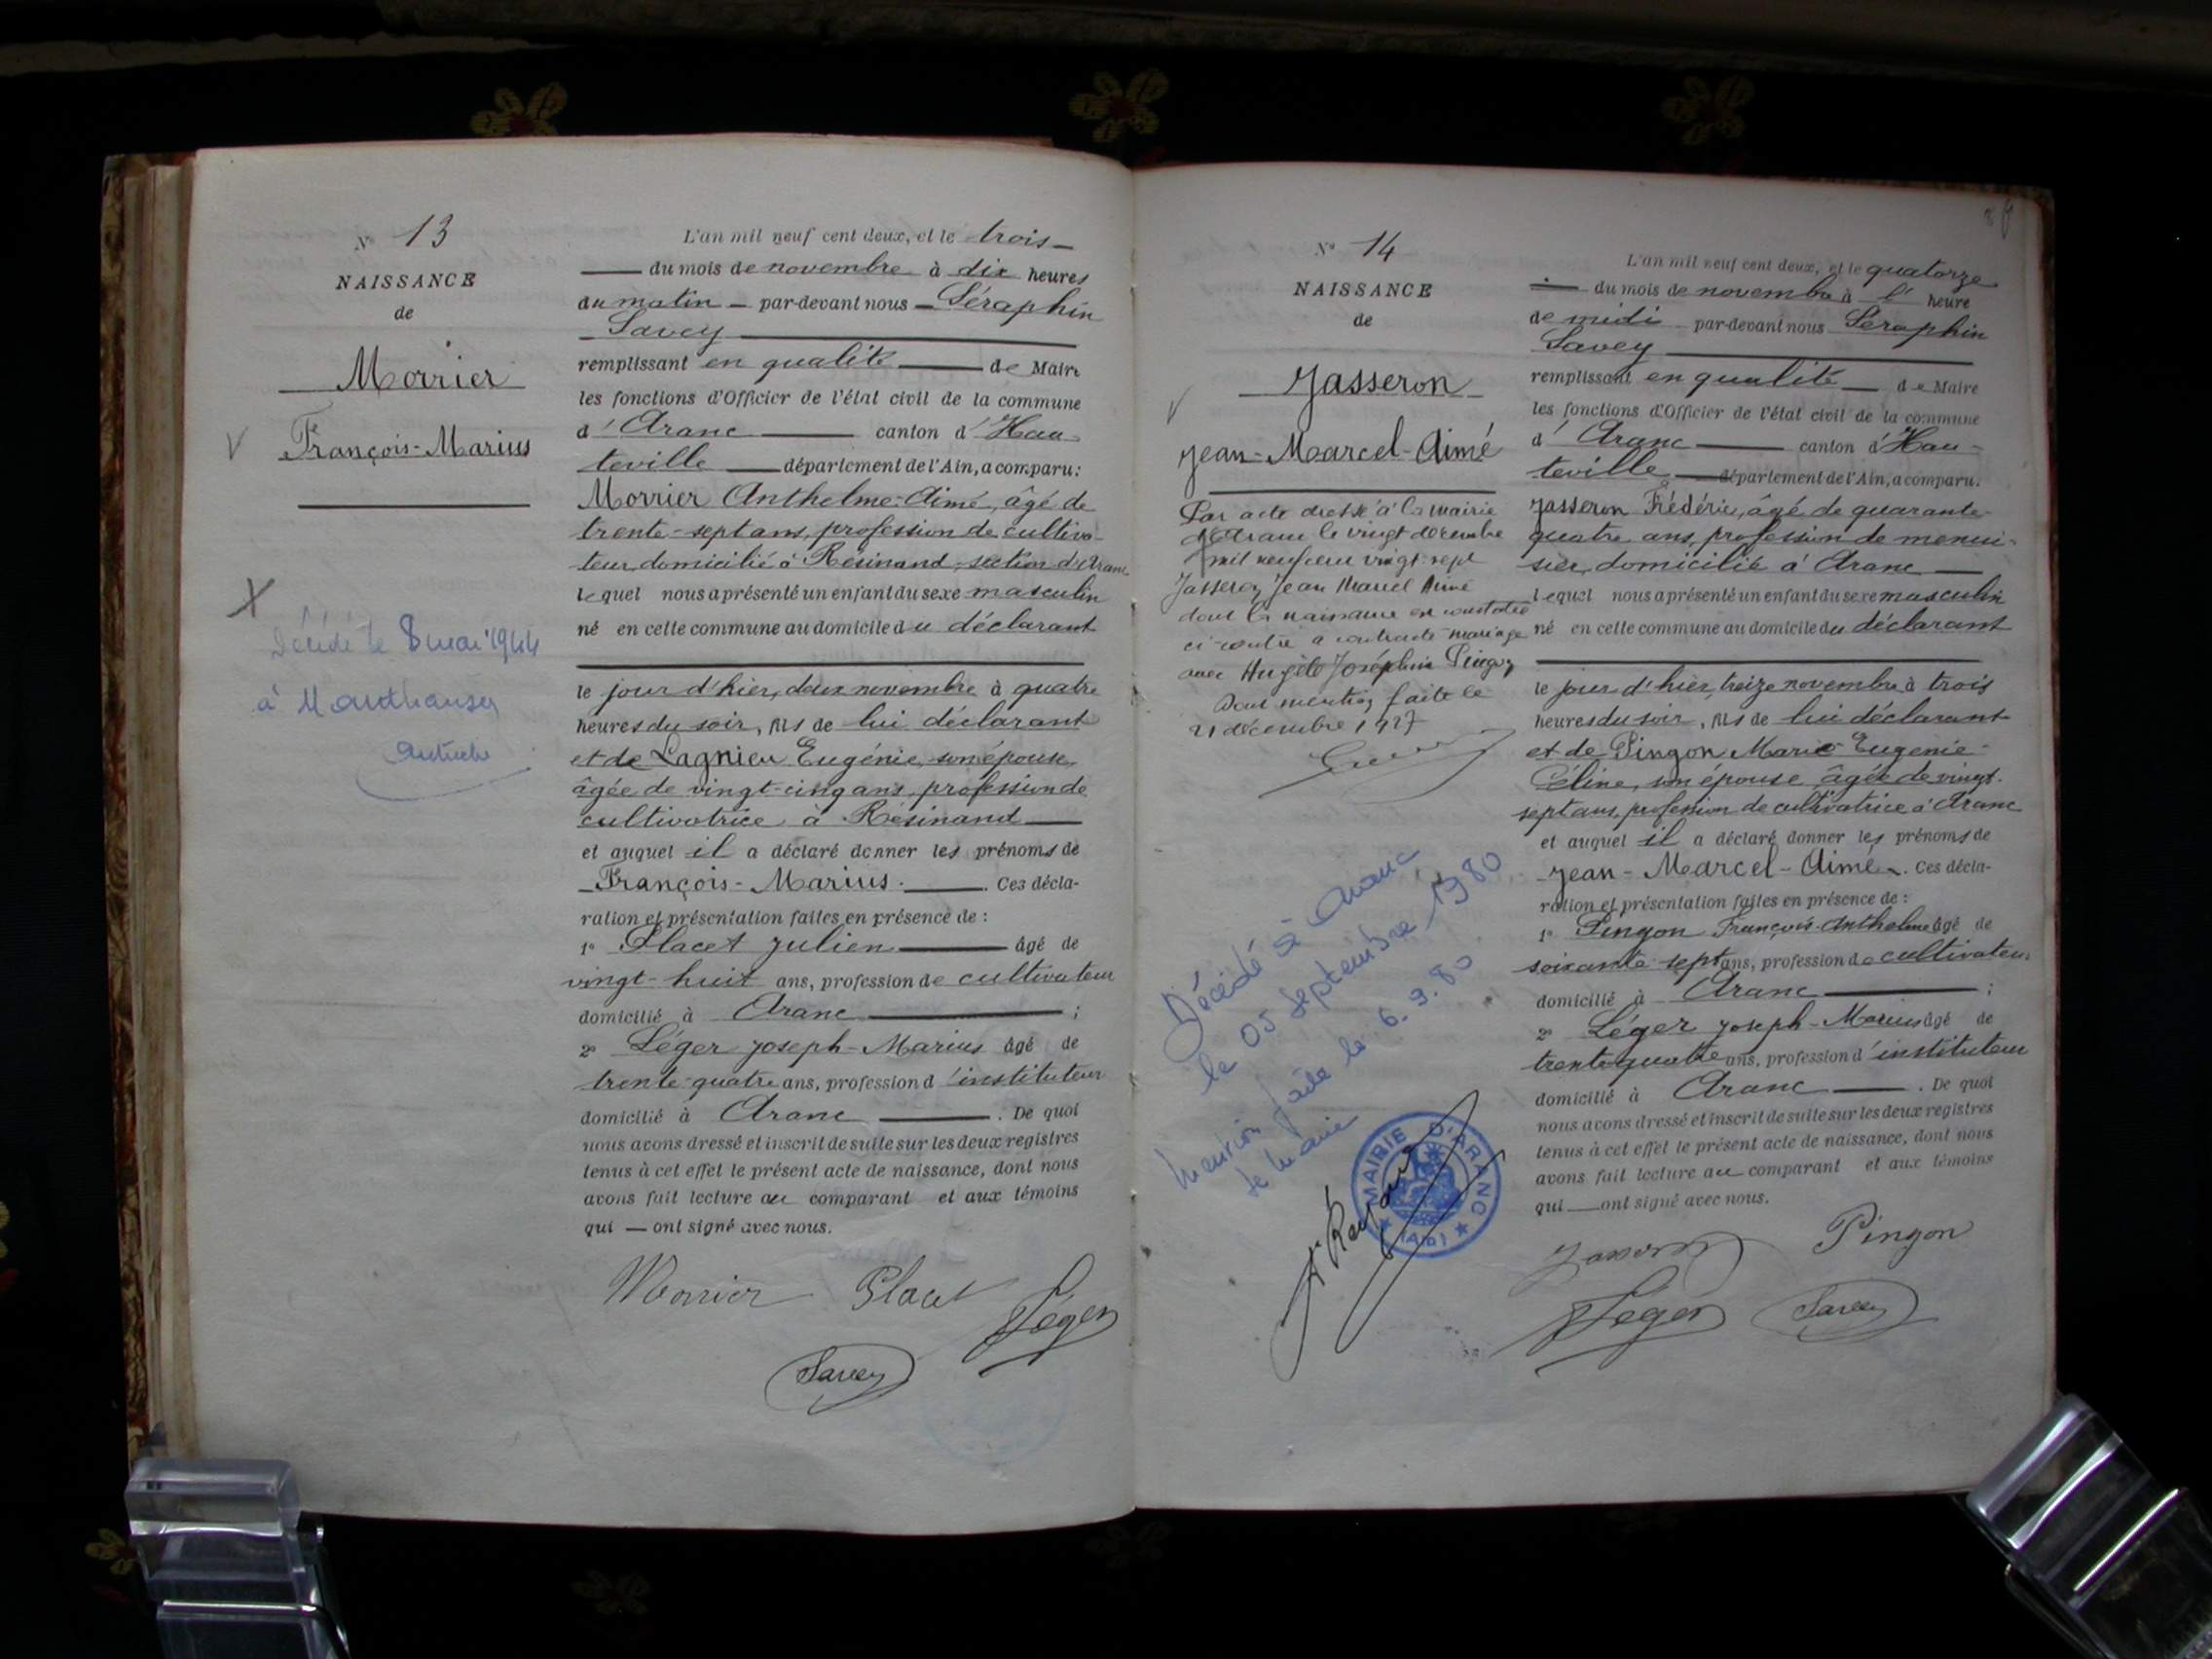 N° 13
NAISSANCE
de
Morrier
François-Marius
Décédé le 8 mai 1944
à Mauthausen
Autriche
L'an mil neuf cent deux, et le trois
du mois de novembre à dix heures
du matin par-devant nous Séraphin
Savey
remplissant en qualité de Maire
les fonctions d'Officier de l'état civil de la commune
d'Aranc canton d'Hau-
teville département de l'Ain, a comparu:
Morrier Anthelme-Aimé, âgé de
trente-sept ans, profession de cultiva-
teur, domicilié à Résinand, section d'Aranc
lequel nous a présenté un enfant du sexe masculin
né en cette commune au domicile du déclarant
le jour d'hier, deux novembre à quatre
heures du soir, fils de lui déclarant
et de Lagnieu Eugénie, son épouse,
âgée de vingt-cinq ans, profession de
cultivatrice à Résinand
et auquel il a déclaré donner les prénoms de
François-Marius. Ces décla-
ration et présentation faites en présence de :
1° Placet Julien âgé de
vingt-huit ans, profession de cultivateur
domicilié à Aranc ;
2° Léger Joseph-Marius âgé de
trente-quatre ans, profession d'instituteur
domicilié à Aranc . De quoi
nous avons dressé et inscrit de suite sur les deux registres
tenus à cet effet le présent acte de naissance, dont nous
avons fait lecture au comparant et aux témoins
qui ont signé avec nous.
Morrier Placet Léger
Savey
N° 14
NAISSANCE
de
Jasseron
Jean-Marcel-Aimé
Par acte dressé à la mairie
d'Aranc le vingt décembre
mil neuf cent vingt-sept
Jasseron Jean Marcel Aimé
dont la naissance est constatée
ci-contre a contracté mariage
avec Angèle Joséphine Pingon
Dont mention faite le
21 décembre 1927
Décédé à Aranc
le 05 septembre 1980
Mention faite le 6.9.80
le Maire
MAIRIE D'ARANC
(Ain)
L'an mil neuf cent deux, et le quatorze
du mois de novembre à l' heure
de midi par-devant nous Séraphin
Savey
remplissant en qualité de Maire
les fonctions d'Officier de l'état civil de la commune
d'Aranc canton d'Hau-
teville département de l'Ain, a comparu:
Jasseron Frédéric, âgé de quarante-
quatre ans, profession de menui-
sier, domicilié à Aranc
lequel nous a présenté un enfant du sexe masculin
né en cette commune au domicile du déclarant
le jour d'hier, treize novembre à trois
heures du soir, fils de lui déclarant
et de Pingon Marie Eugénie-
Céline, son épouse, âgée de vingt-
sept ans, profession de cultivatrice à Aranc
et auquel il a déclaré donner les prénoms de
Jean-Marcel-Aimé. Ces décla-
ration et présentation faites en présence de :
1° Pingon François-Anthelme âgé de
soixante-sept ans, profession de cultivateur
domicilié à Aranc ;
2° Léger Joseph-Marius âgé de
trente-quatre ans, profession d'instituteur
domicilié à Aranc . De quoi
nous avons dressé et inscrit de suite sur les deux registres
tenus à cet effet le présent acte de naissance, dont nous
avons fait lecture au comparant et aux témoins
qui ont signé avec nous.
Jasseron Pingon
Léger Savey